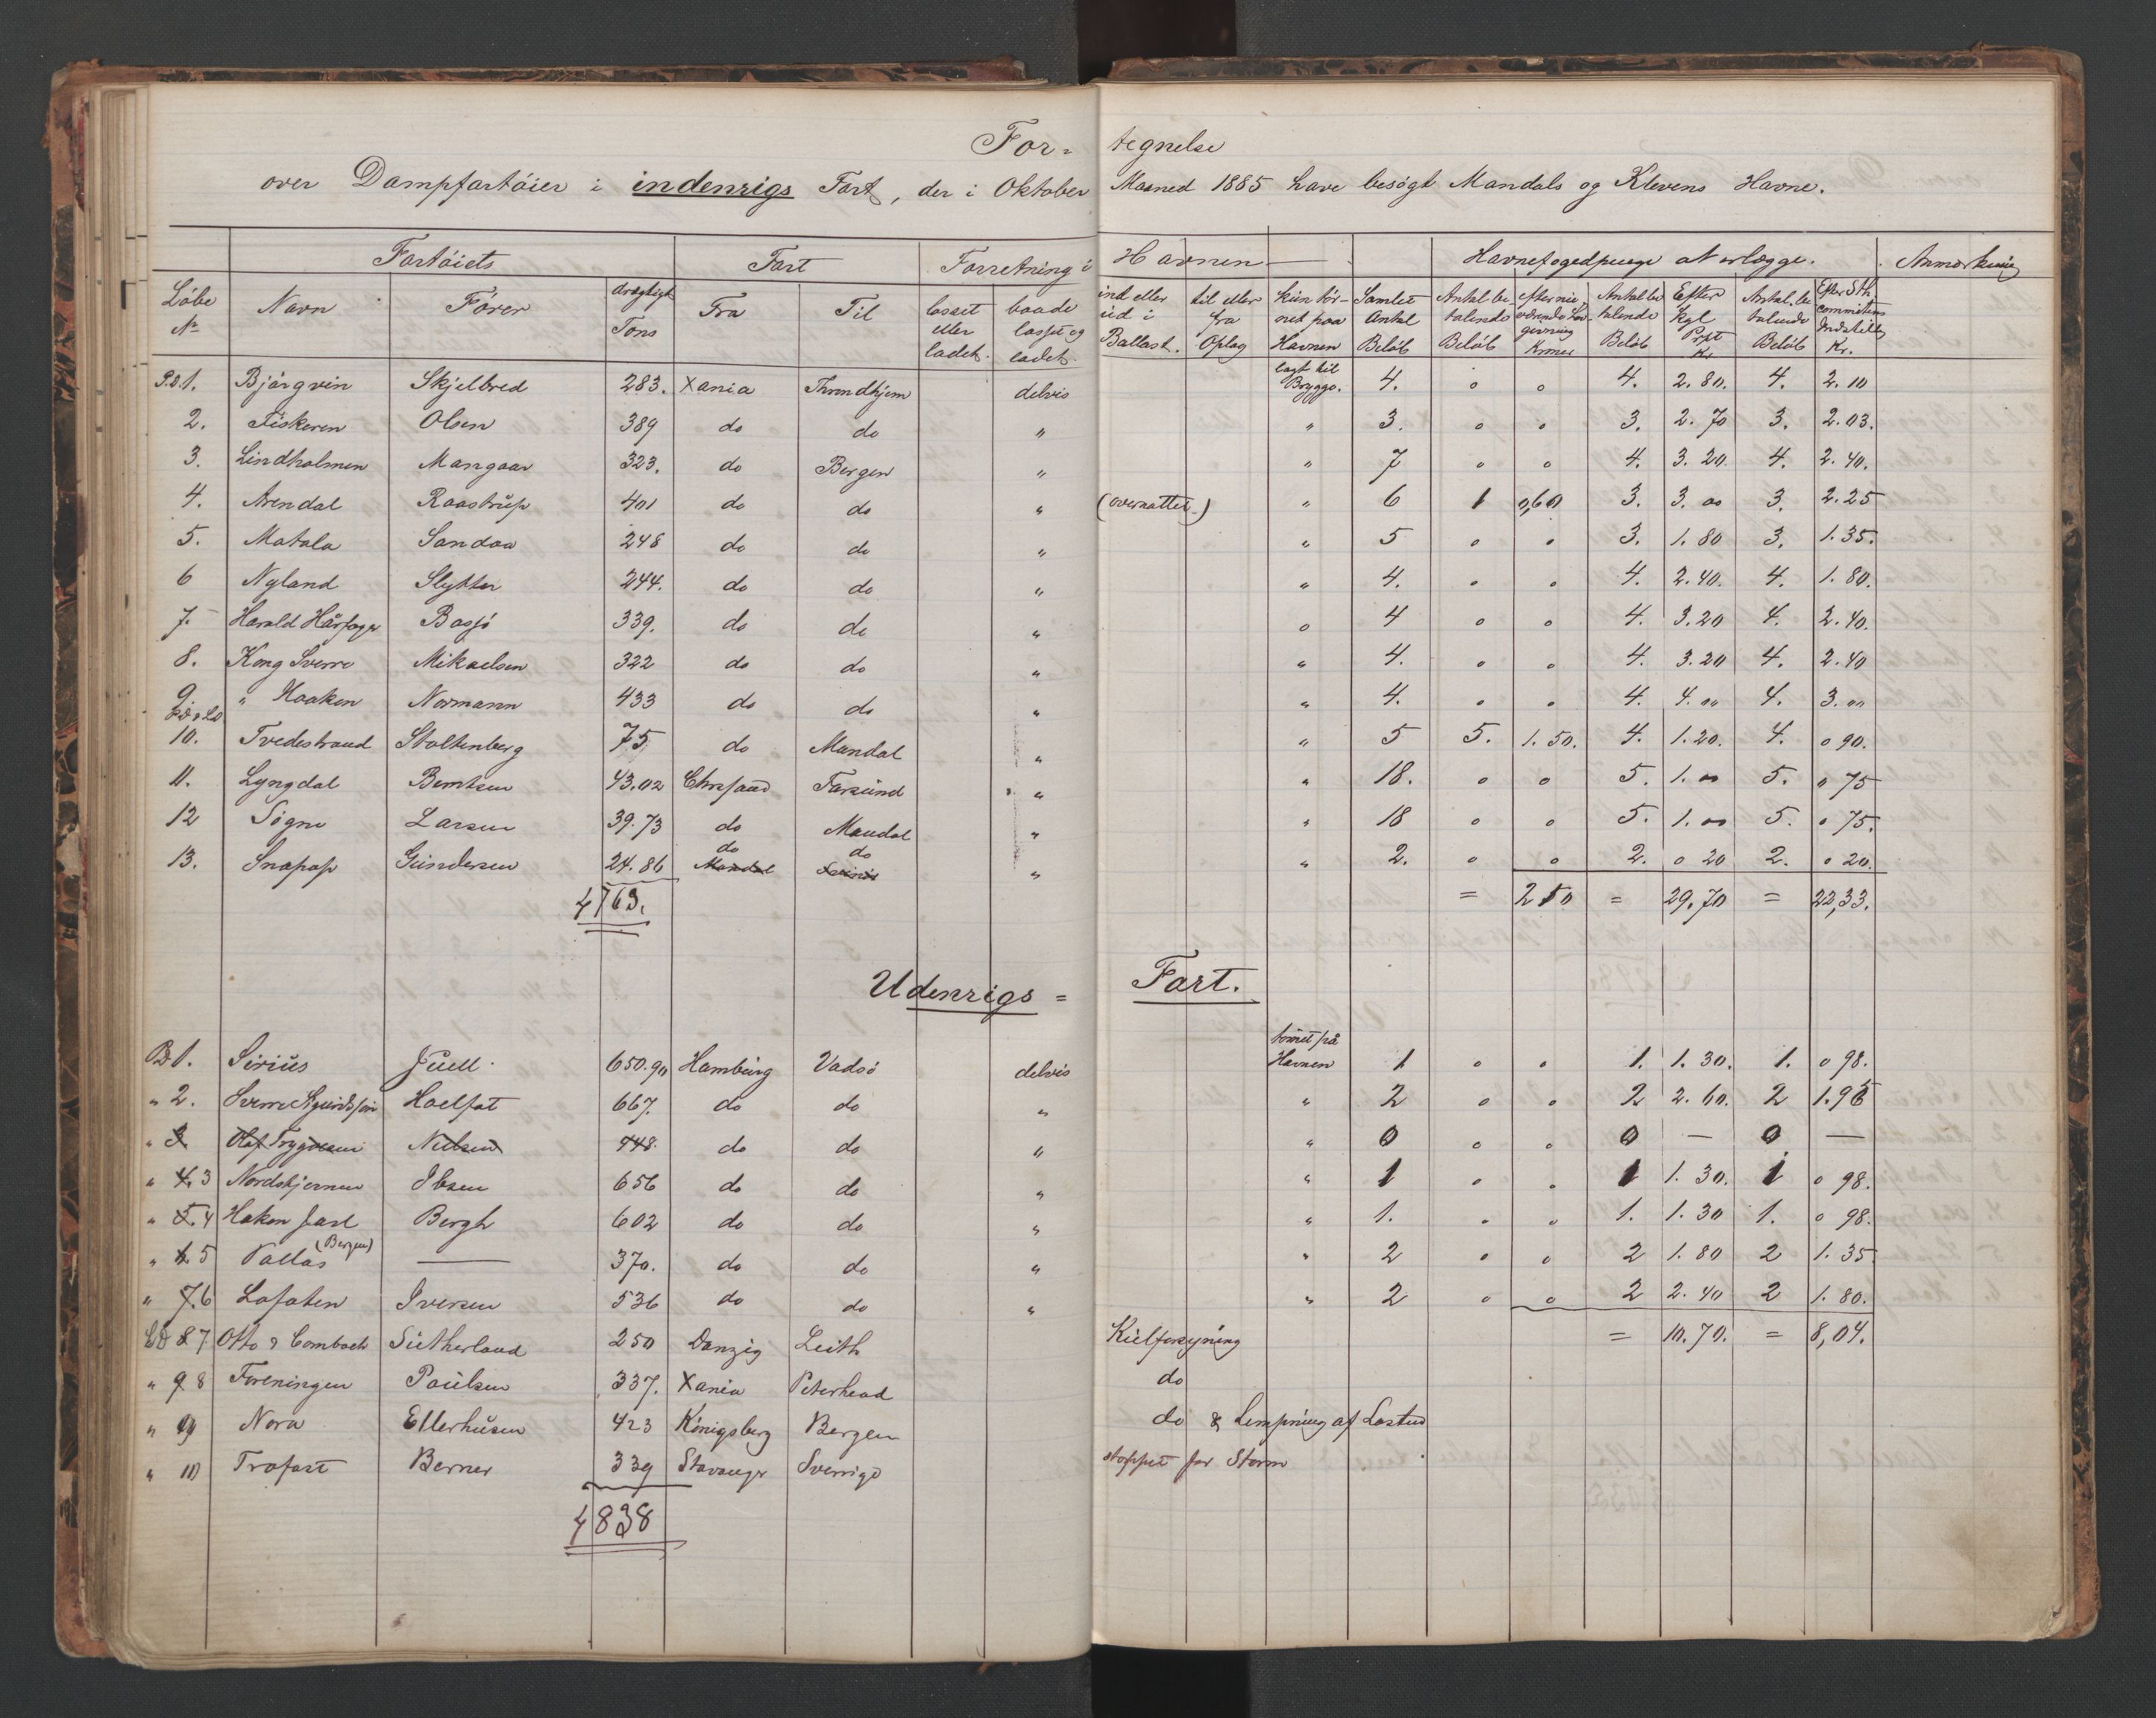 For- tegnelse
over Dampfartöier i indenrigs Fart, der i Oktober Maaned 1885 have besögt Mandals og Klevens Havne.
Fartöiets Fart Forretning i Havnen Havnefogedpenge at erlægge. Anmærkning
Löbe No Navn Förer drægtigh Tons Fra Til losset eller ladet. baade losset og ladet. ind eller ud i Ballast. til eller fra Oplag kun tör- net paa Havnen Samlet Antal Belöb Antal be talende Belöb efter nu- værende Lov- givning Kroner Antal be talende Belöb Efter Kgl Prpt Kr. Antal be talende Belöb Efter Sth. committens Indstill Kr.
P.D 1. Björgvin Skjelbred 283. Xania Throndhjem delvis lagt til Brygge. 4. o o 4. 2.80. 4. 2.10
2. Fiskeren Olsen 389 do do " " 3. o o 3. 2.70 3. 2.03.
3. Lindholmen Mangaar 323. do Bergen " " 7 o o 4. 3.20. 4. 2.40.
4. Arendal Raastrup 401 do do " (overnattet) " 6 1 0,60 3. 3.00 3. 2.25
5. Motala Sandoa 248 do do " " 5 o o 3. 1.80 3. 1.35.
6 Nyland Slytter 244. do do " " 4. o o 4. 2.40. 4. 1.80.
7. Harald Hårfager Bassö 339. do do " o 4 o o 4. 3.20 4. 2.40.
8. Kong Sverre Mikaelsen 322 do do " " 4. o o 4. 3.20 4. 2.40
9. " Haakon Normann 433 do do " " 4. o o 4. 4.00 4. 3.00
10. Tvedestrand Stoltenberg 75 do Mandal " " 5 5. 1.50. 4. 1.20. 4. o 90.
11. Lyngdal Berntsen 43.02 Chrsand Farsund " " 18. o o 5. 1.00 5. o 75
12 Sögne Larsen 39.73 do Mandal " " 18 o o 5. 1.00 5. o 75.
do do
13. Snapop Gundersen 24.86 Mandal " " 2. o o 2. o 20 2. o 20.
4763. = 2 10 = 29,70 = 22,33.
Udenrigs = Fart.
PD 1. Sirius Juell 650.90 Hamburg Vadsö delvis törnet på Havnen 1 o o 1. 1.30. 1. o 98.
" 2. Sverre Sigurdssön Hoelfat 667. do do " " 2 o o 2 2.60. 2 1.95
" 3 Olaf Trygvesen Nielsen 448. do do " " 0 o o 0 — 0 —
" 4. 3 Nordstjernen Ibsen 656 do do " " 1 o o 1 1.30. 1 o 98.
" 5. 4 Hakon Jarl Bergh 602 do do " " 1. o o 1. 1.30 1. o 98.
" 6. 5 Pallas (Bergen) — 370. do do " " 2 o o 2 1.80 2 1.35
" 7. 6 Lofoten Iversen 536 do do " " 2 o o 2 2.40 2 1.80.
LD 8 7 Otto & Combach Sutherland 250 Danzig Leith Kulforsyning = 10.70. = 8,04.
" 9 8 Foreningen Poulsen 337. Xania Peterhead do
" 9 Nora Ellerhusen 423 Königsberg Bergen do & Lempning af Lasten
" 10 Trofast Berner 339 Stavanger Sverrige stoppet for Storm
4838